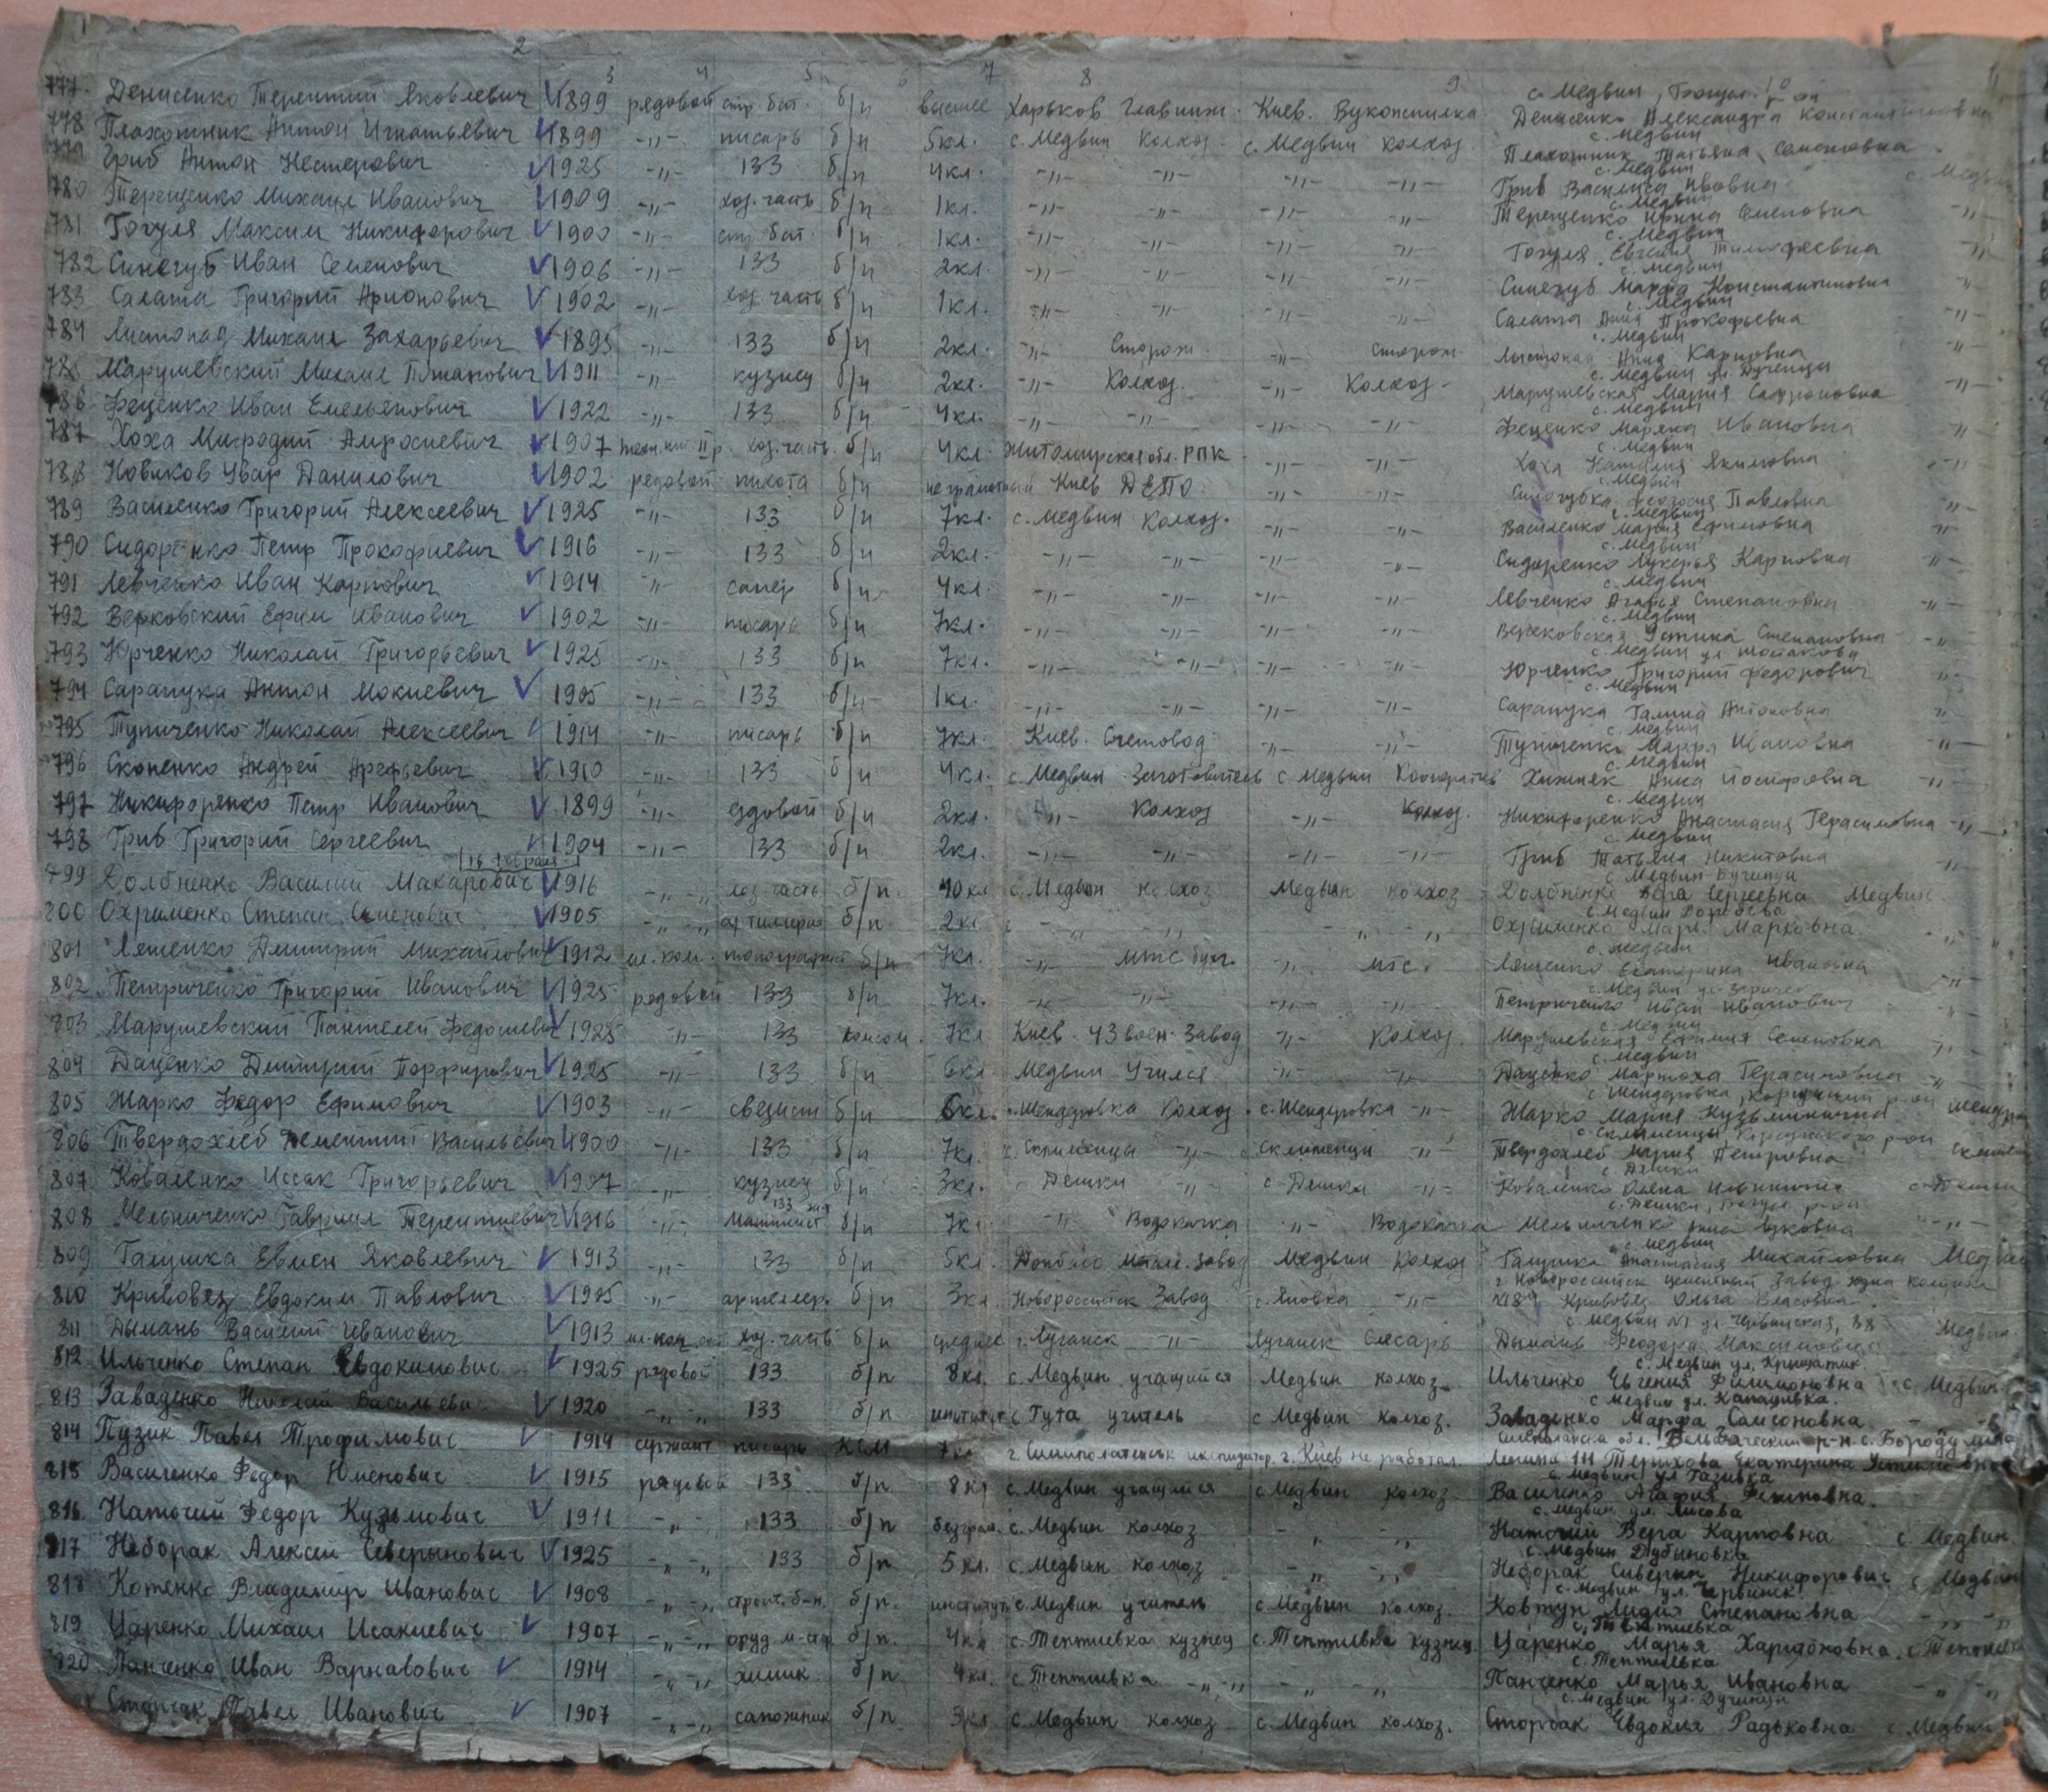 1 2 3 4 5 6 7 8 9 11
777. Денисенко Терентий Яковлевич 1899 рядовой стр. бат. б/п высшее Харьков Главинж. Киев. с. Медвин, Богусл. Денисенко Александра Константиновна
778 Плахотник Антон Игнатьевич 1899 -"- писарь б/п 5кл. с. Медвин Колхоз. с. Медвин колхоз с. Медвин Плахотник Татьяна Семеновна
779 Гриб Антон Нестерович 1925 -"- 133 б/п 4кл. -"- -"- -"- -"- с. Медвин Гриб Василиса с. Медвин
780 Терещенко Михаил Иванович 1909 -"- хоз. часть б/п 1кл. -"- -"- -"- -"- с. Медвин Терещенко Семеновна -"-
781 Гогуля Максим Никифорович 1900 -"- стр. бат. б/п 1кл. -"- -"- -"- -"- с. Медвин Гогуля Евгения Тимофеевна -"-
782 Синегуб Иван Семенович 1906 -"- 133 б/п 2кл. -"- -"- -"- -"- с. Медвин Синегуб Марфа Константиновна -"-
783 Салата Григорий Арионович 1902 -"- хоз. часть б/п 1кл. -"- -"- -"- -"- с. Медвин Салата Анна Прокофьевна -"-
784 Листопад Михаил Захарьевич 1895 -"- 133 б/п 2кл. -"- Сторож -"- Сторож с. Медвин Листопад Анна Карповна -"-
785 Марушевский Михаил 1911 -"- кузнец б/п 2кл. -"- Колхоз. -"- Колхоз- с. Медвин ул. Марушевская Мария Сафроновна -"-
786 Феценко Иван Емельянович 1922 -"- 133 б/п 4кл. -"- -"- -"- -"- с. Медвин Феценко Ивановна -"-
787 Хоха Мифодий 1907 техн. инт. II р. хоз. часть. б/п 4кл. Житомирская обл. РПК -"- -"- с. Медвин Хоха Наталия Якимовна -"-
788 Новиков Увар Данилович 1902 рядовой пихота б/п неграмотный Киев ДЕПО. -"- -"- с. Медвин Павловна -"-
789 Василенко Григорий Алексеевич 1925 -"- 133 б/п 7кл. с. Медвин Колхоз. -"- -"- с. Медвин Василенко Мария Ефимовна -"-
790 Сидоренко Петр Прокофиевич 1916 -"- 133 б/п 2кл. -"- -"- -"- -"- с. Медвин Сидоренко Лукерья Карповна -"-
791 Левченко Иван Карпович 1914 -"- сапер б/п 4кл. -"- -"- -"- -"- с. Медвин Левченко Агафья Степановна -"-
792 Верковский Ефим Иванович 1902 -"- писарь б/п 7кл. -"- -"- -"- -"- с. Медвин Устина Степановна -"-
793 Юрченко Николай Григорьевич 1925 -"- 133 б/п 7кл. -"- -"- -"- -"- с. Медвин ул. Юрченко Григорий Федорович -"-
794 Сарапука Антон Мокиевич 1905 -"- 133 б/п 1кл. -"- -"- -"- -"- с. Медвин Сарапука Галина Антоновна -"-
795 Тупиченко Николай Алексеевич 1914 -"- писарь б/п 7кл. Киев. Счетовод -"- -"- с. Медвин Тупиченко Марфа Ивановна -"-
796 Скопенко Андрей Арефьевич 1910 -"- 133 б/п 4кл. с. Медвин Заготовитель с. Медвин Кооператив с. Медвин Хижняк Анна Иосифовна -"-
797 Никифоренко Петр Иванович 1899 -"- ездовой б/п 2кл. -"- Колхоз -"- колхоз. с. Медвин Никифоренко Анастасия Герасимовна -"-
798 Гриб Григорий Сергеевич 1904 -"- 133 б/п 2кл. -"- -"- -"- -"- с. Медвин Гриб Татьяна Никитовна -"-
799 Долбненко Василий Макарович 1916 -"- хоз. часть б/п. 10кл с. Медвин колхоз Медвин колхоз с. Медвин Долбненко Вера Сергеевна Медвин
800 Охрименко Степан Семенович 1905 -"- б/п. 2кл. -"- -"- -"- -"- с. Медвин Охрименко Марковна. -"-
801 Ляшенко Дмитрий Михайлович 1912 мл. ком. б/п 7кл. -"- МТС бухг. -"- МТС. с. Медвин Ляшенко Екатерина Ивановна -"-
802 Петриченко Григорий Иванович 1925 рядовой 133 б/п 7кл. -"- -"- -"- -"- с. Медвин ул. Петриченко Иван Иванович -"-
803 Марушевский Пантелей 1925 -"- 133 комсом. 7кл Киев. 43 воен. Завод -"- Колхоз. с. Медвин Марушевская Семеновна -"-
804 Даценко Дмитрий Порфирович 1925 -"- 133 б/п 6кл Медвин Учился -"- -"- с. Медвин Даценко Герасимовна -"-
805 Жарко Федор Ефимович 1903 -"- связист б/п 6кл. с. Шендеровка Колхоз с. Шендеровка -"- с. Шендеровка, Жарко Мария Кузьминична
806 Твердохлеб Дементий Васильевич 1900 -"- 133 б/п 7кл. с. -"- -"- Твердохлеб Мария Петровна
807 Коваленко Иссак Григорьевич 1907 -"- кузнец б/п 3кл. с. Дешки -"- с. Дешки -"- с. Дешки Коваленко Олена
808 Мельниченко Гавриил Терентиевич 1916 -"- 133 б/п 7кл -"- Водокачка -"- Водокачка с. Дешки, Мельниченко -"-
809 Галушка Евмен Яковлевич 1913 -"- 133 б/п 5кл. Донбасс Метал. завод Медвин Колхоз с. Медвин Галушка Анастасия Михайловна Медвин
810 Кривовяз Евдоким Павлович 1905 -"- артеллер. б/п 3кл. Новороссийск Завод с. Яновка -"- г. Новороссийск цементный Завод Кривовяз Ольга Власовна
811 Дымань Василий Иванович 1913 хоз. часть б/п среднее г. Луганск -"- Луганск Слесарь с. Медвин №1 ул. Червинская, 88 Дымань Феодора Максимовна Медвин
812 Ильченко Степан Евдокимович 1925 рядовой 133 б/п 8кл. с. Медвин учащийся Медвин колхоз с. Медвин ул. Крищатик Ильченко Евгения Филимоновна с. Медвин
813 Заваденко Николай Васильевич 1920 -"- 133 б/п институт с. Гута учитель с. Медвин колхоз. с. Медвин ул. Заваденко Марфа Самсоновна
814 Пузик Павел Трофимович 1914 сержант писарь КСМ 7кл г. Симполатенськ г. Киев не работал. р-н. с. Ленина 111 Терихова Екатерина
815 Василенко Федор 1915 рядовой 133 б/п 8кл с. Медвин учащийся с. Медвин колхоз с. Медвин ул. Василенко Агафия
816 Наточий Федор Кузьмович 1911 -"- 133 б/п безграм. с. Медвин колхоз -"- -"- с. Медвин ул. Лисова Наточий Вера Карповна с. Медвин
817 Неборак Алексей Северынович 1925 -"- 133 б/п 5 кл. с. Медвин колхоз -"- -"- с. Медвин Дубыновка Неборак Сиверын Никифорович с. Медвин
818 Котенко Владимир Иванович 1908 -"- строит. б-н. б/п. институт с. Медвин учитель с. Медвин колхоз. с. Медвин ул. Червинск. Ковтун Лидия Степановна -"-
819 Царенко Михаил Исакиевич 1907 -"- б/п. 4кл с. Тептиевка кузнец с. Тептиевка кузнец. с. Тептиевка Царенко Марья Харитоновна.
820 Панченко Иван Варнавович 1914 -"- химик б/п 4кл. с. Тептиевка -"- -"- -"- с. Тептиевка Панченко Марья Ивановна -"-
Сторчак Павел Иванович 1907 -"- сапожник б/п 3кл с. Медвин колхоз с. Медвин колхоз. с. Медвин ул. Сторчак Евдокия Радьковна с. Медвин